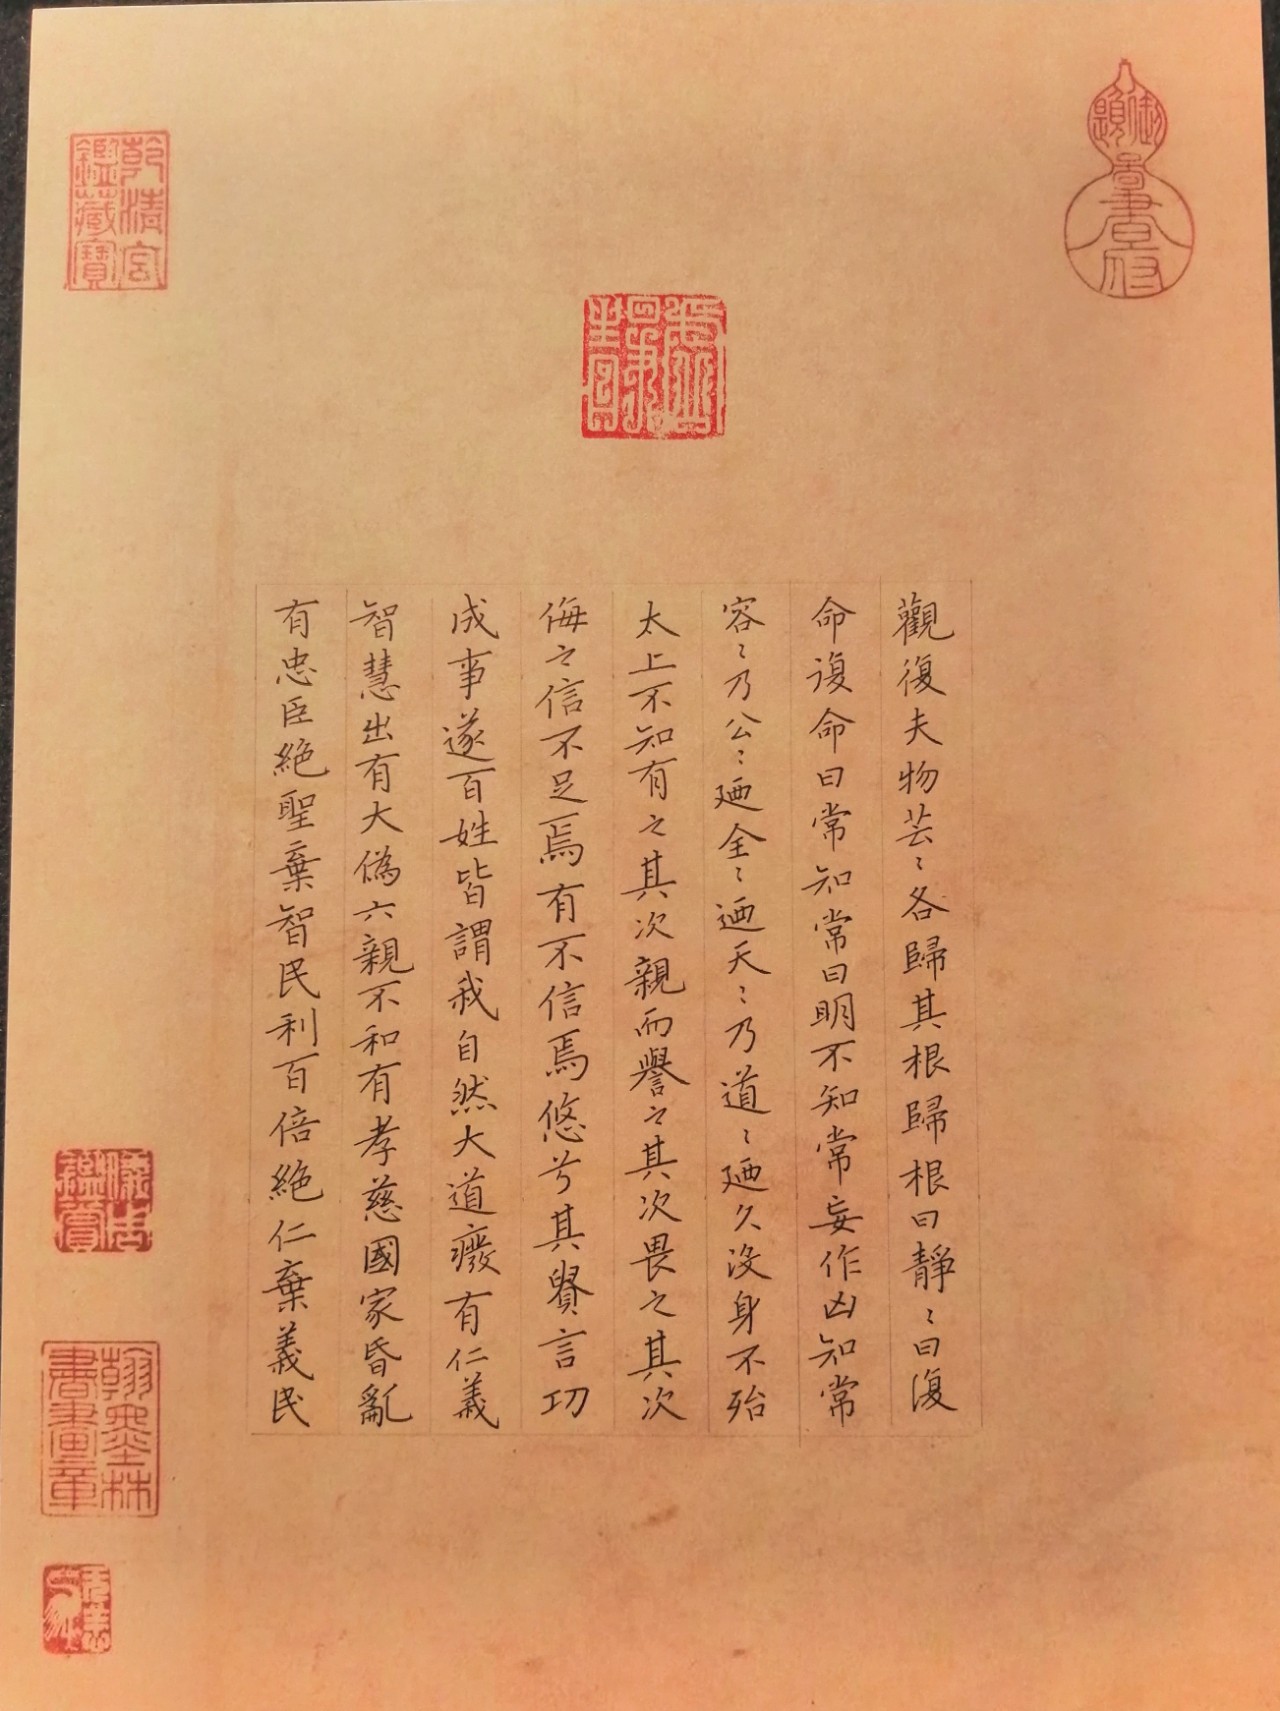 觀復夫物芸〻各歸其根歸根曰靜〻曰復
命復命曰常知常曰明不知常妄作凶知常
容〻乃公〻廼全〻廼天〻乃道〻廼久沒身不殆
太上不知有之其次親而譽之其次畏之其次
侮之信不足焉有不信焉悠兮其貴言功
成事遂百姓皆謂我自然大道癈有仁義
智慧出有大偽六親不和有孝慈國家昏亂
有忠臣絶聖棄智民利百倍絶仁棄義民
御題
圖書府
乾清宮
鑑藏寶
鑑賞
翰墨林
書畫章